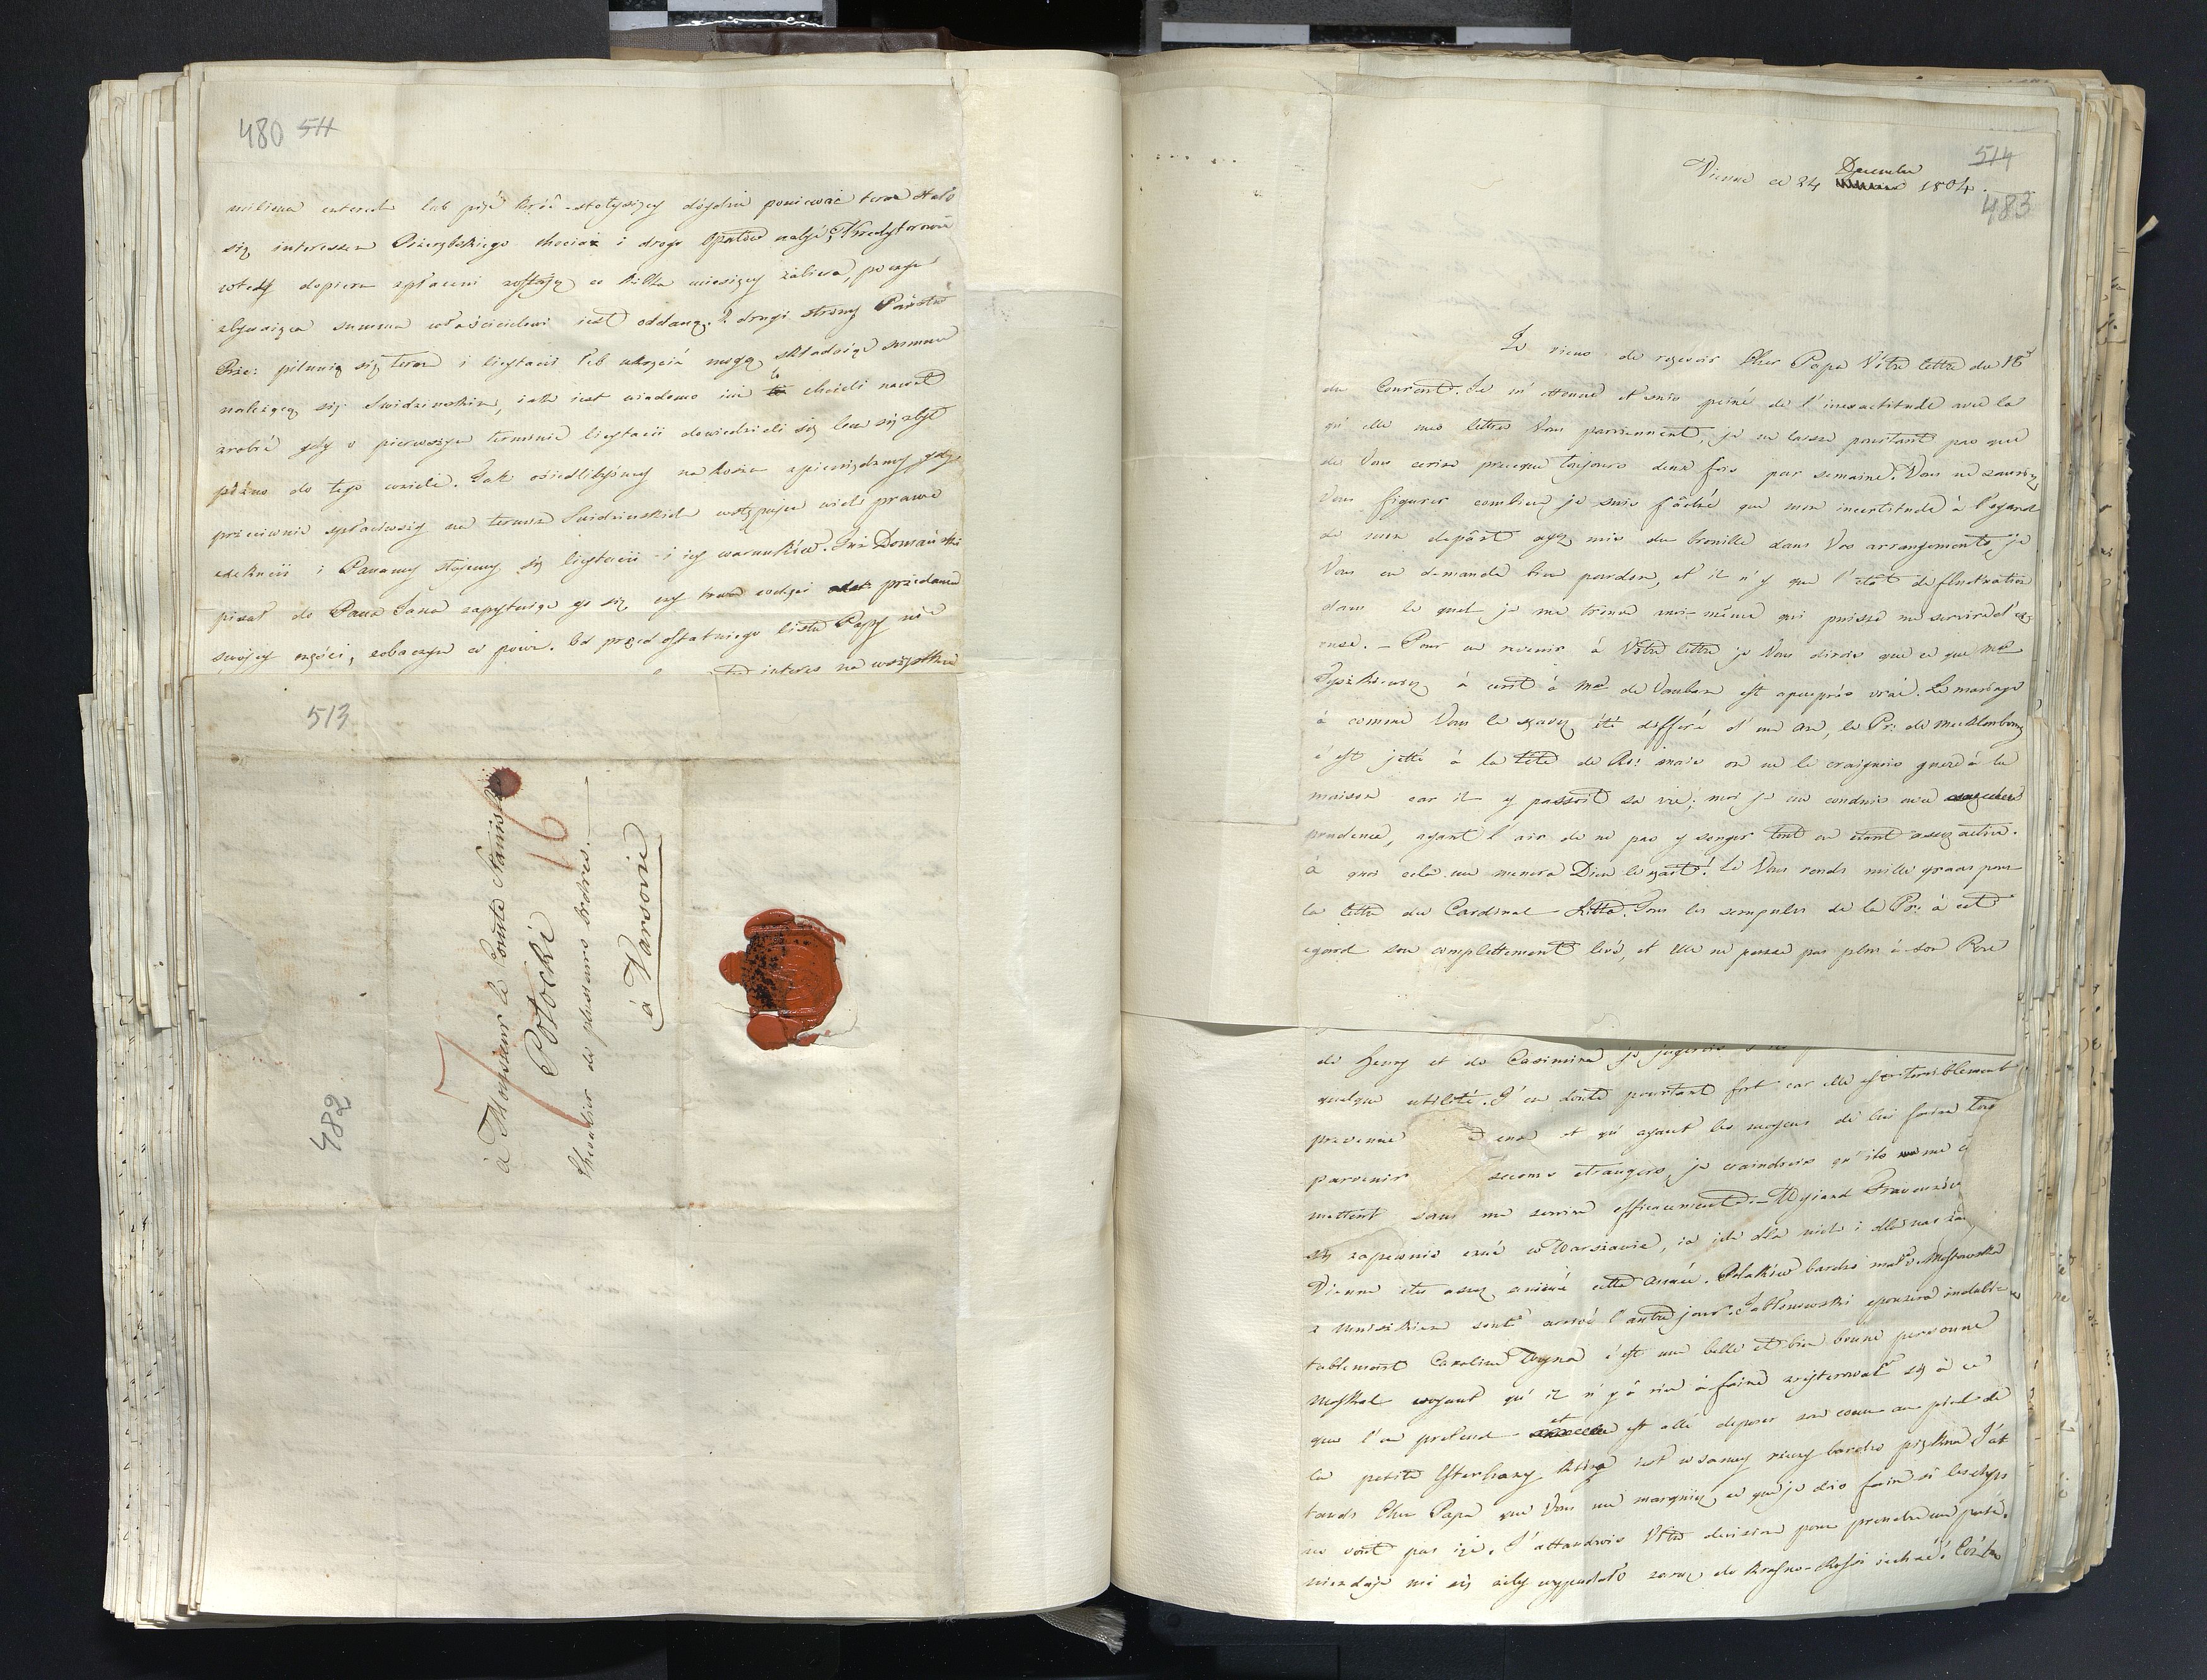 480 511
miliona intereda lub pięć kroć-stotysięcy dojdzie ponieważ teraz stało
się interessem chociaż i drogo Opatów nabyć, Kredytorowie
wtedy dopiero spłaceni zostają w kilka miesięcy zaliera, poczym
zbywaiąca summa właścicielowi iest oddaną. Z drugi strony Państwo
Prze: pilnuią się teraz i licytacii łeb ukręcić mogą składaiąc summe
należącą się Swidzinskim, iak iest wiadomo im to chcieli nawet
zrobić gdy o pierwszym terminie licytacii dowiedzieli się lecz się zbyt
późno do tego wzieli. Jak osiedlibyśmy na koszu z pieniędzmy gdy
przeciwnie spłaciwszy na terminie Swidzinskich wstępuje wich prawa
exekucii i Panamy stajemy się licytacii i iey warunków. Już Domański
pisał do Pana Jana zapytuiąc go się czy teraz zechce przedawać
swojey części, zobaczym co powie. Od przedostatniego listu Papy nie
interes na wszystkie
513
à Monsieur le Comte Stanislas
Potocki
Chevalier de plusieurs Ordres.
à Varsovie
16
7
482
514
Vienne ce 24 Decembre 1804.
483
Je viens de reçevoir Cher Papa Vôtre lettre du 16
du Courent. Je m'ettonne et suis peiné de l'inexactitude avec la
qu'elle mes lettres Vous parviennent, je ne laisse pourtant pas que
de Vous ecrire presque toujours deux fois par semaine. Vous ne sauriez
Vous figurer combien je suis fâché que mon incertitude à l'egard
de mon depârt ayez mis du brouille dans Vos arrangements, je
Vous en demande bien pardon, et il n'y que l'état de fluctuation
dans le quel je me trouve moi-même qui puisse me servire d'ex
cuse. - Pour en revenir à Vôtre lettre je Vous dirois que ce que Md
Tyszkiewicz à ecrit à Md de Vauban est apeuprès vrai. Le mariage
à comme Vous le sçavez été differé d'une an, le Pr: de Mecklenbourg
s'est jetté à la tête de Ro: mais on ne le craignois guere à la
maison car il y passoit sa vie; moi je me conduis avec
prudence, ayant l'air de ne pas y songer tout en etant assez active.
à quoi celà me menera Dieu le sçait! Je Vous rends mille graces pour
la lettre du Cardinal Litta. Tous les scrupules de la Pr: à cet
egard son complettement levé, et elle ne pense pas plus à son Pere
de Henry et de Casimire je jugerois
quelque utilité. J'en doute pourtant fort car elle est terriblement
prevenue d'eux et qu'ayant les moyens de lui faire
parvenir secours etrangers, je craindrois qu'ils ne me
mettent sans me servire efficacement. - Wyiazd
się zapewnie czuć w Warszawie, ia ich dla nich i dla nas
Vienne etes assez animé cette Année. Polaków bardzo mało. Mostowska
z Mniszkiem sont arrivé l'autre jour. Jabłonowski epousera indubi=
tablement Caroline Woyna c'est une belle et bien bonne personne
Moskal voyant qu'il n'y à rien à faire zrejterował się à ce
que l'on pretend et est allé deposer son coeur aux pied de
la petite Esterhazy która iest w samey rzeczy bardzo piękna. J'at
tends Cher Papa que Vous me marquiez ce que je dois faire si les
ne sont pas içi. J'attendrois Vôtre decision pour prendre un parti.
niezdaje mi się żeby wypadało zaraz do jechać!